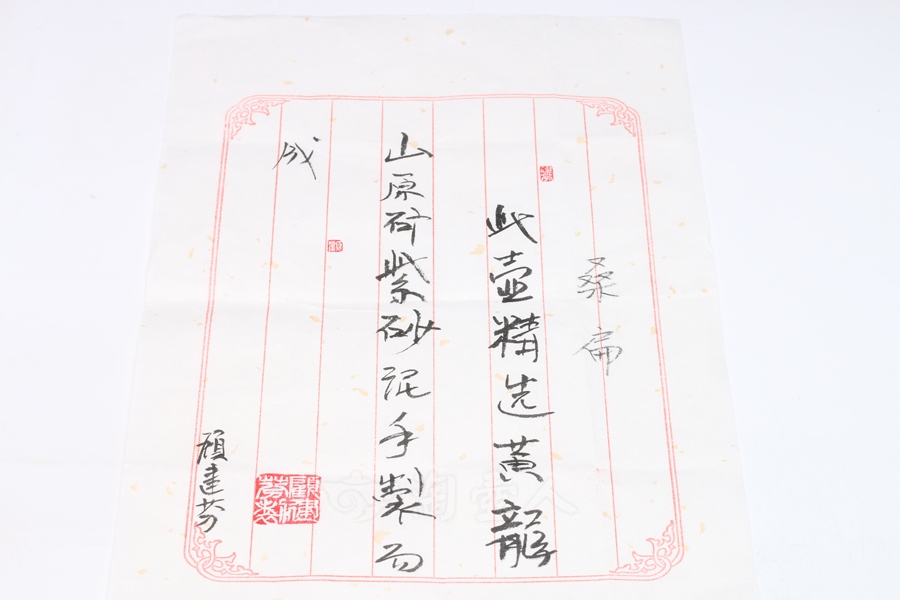 桑扁
此壶精选黄龍
山原矿紫砂泥手製而
成
顾建芬